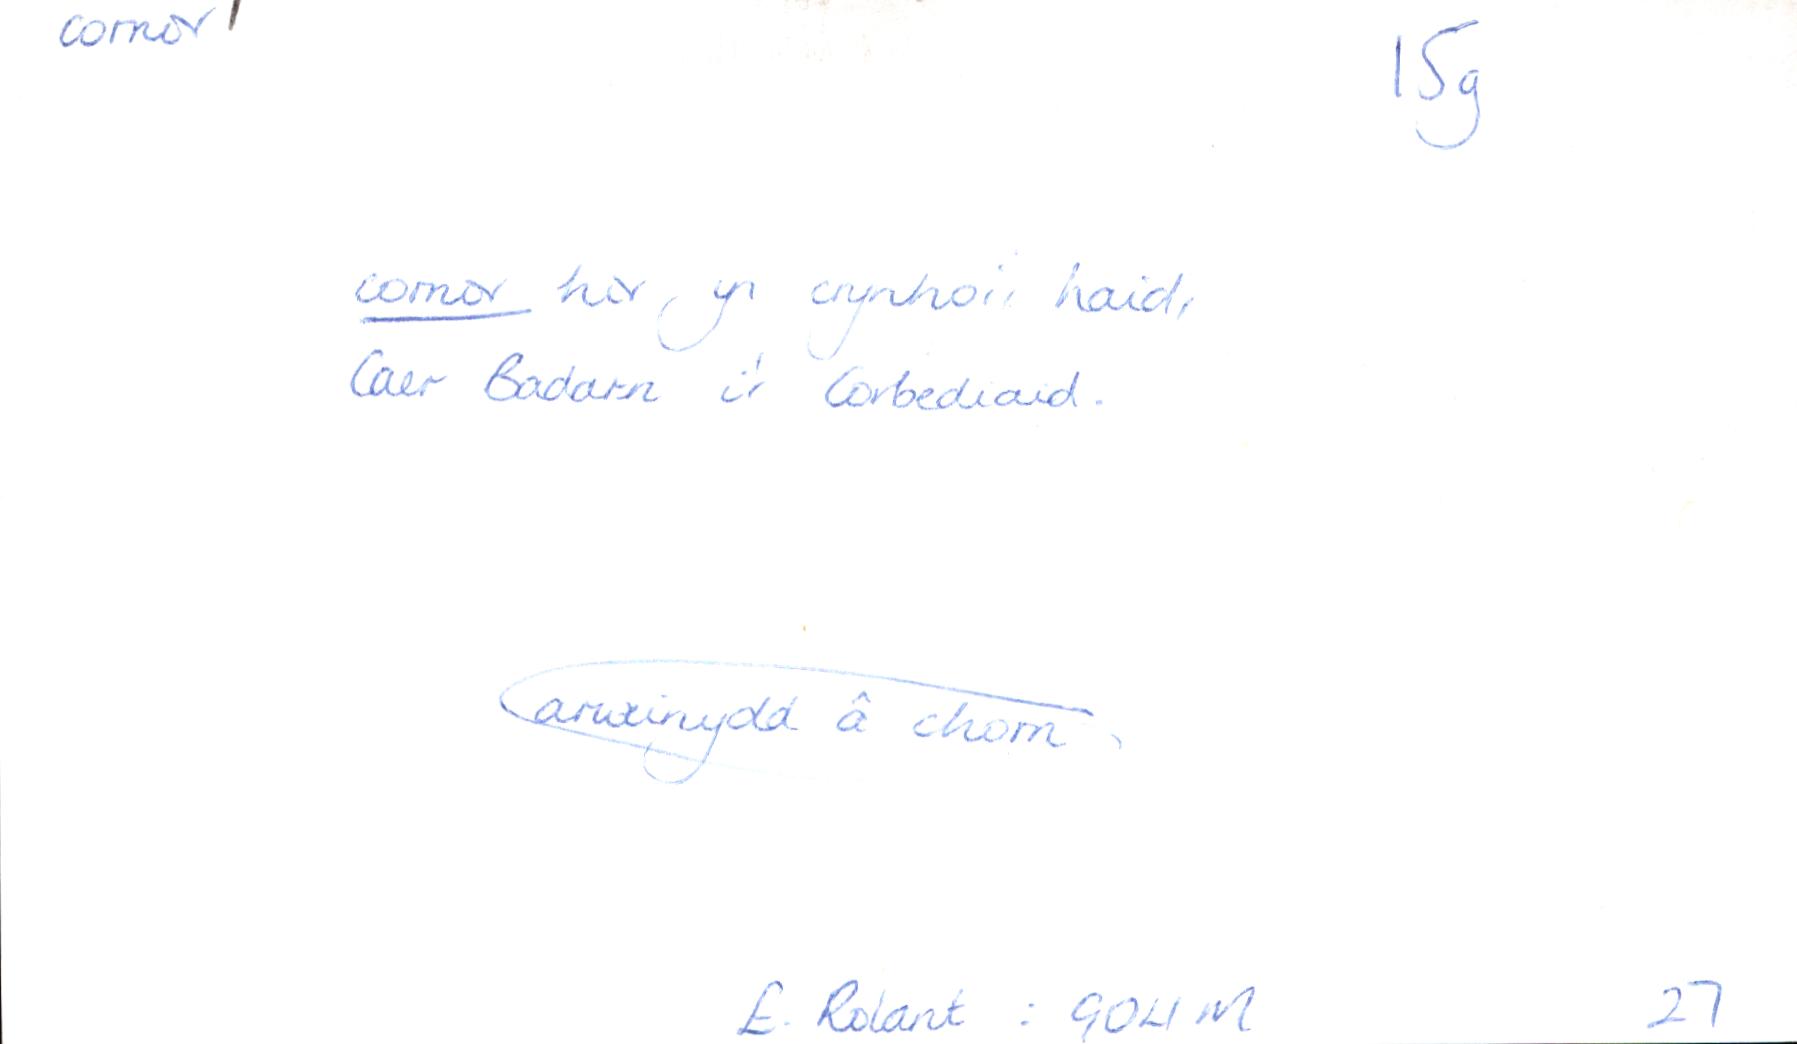 cornor
15g
cornor hir, yn crynhoi'i haid,
Caer Badarn i'r Corbediaid.
(arweinydd â chorn
E. Rolant : GOLlM 27